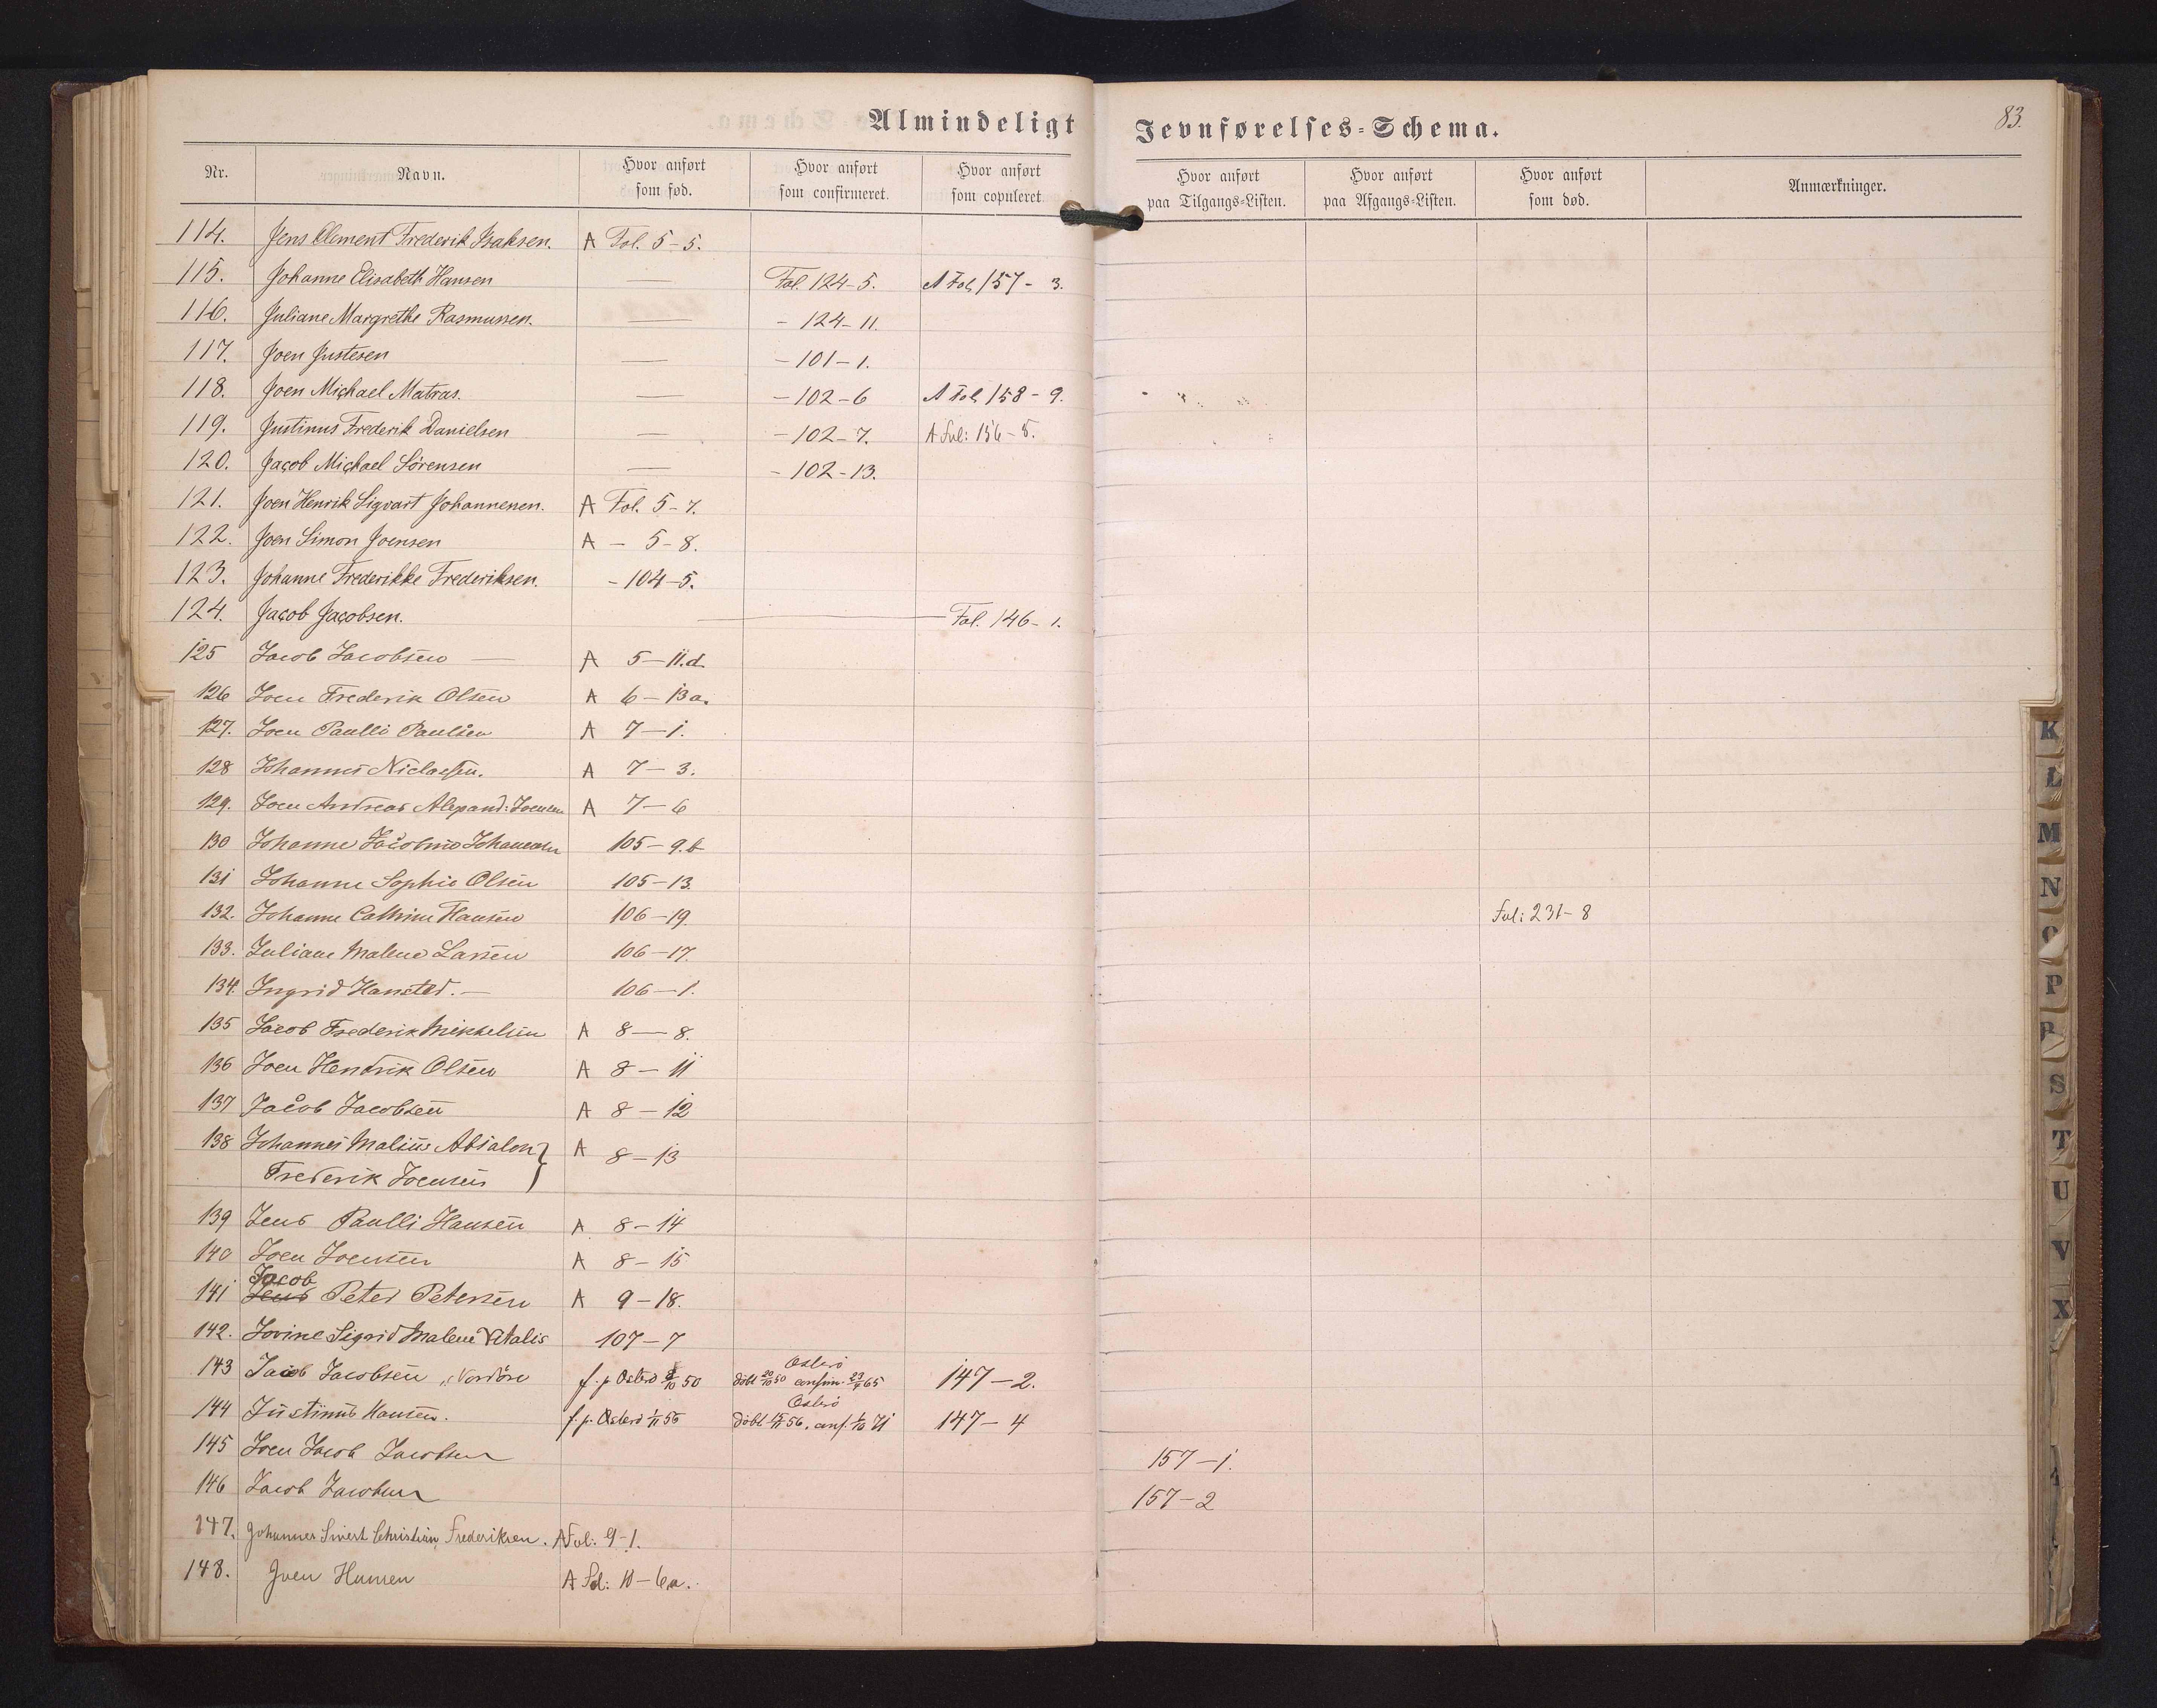 Almindeligt Jevnførelses-Schema.
83.
Nr. Navn. Hvor anført som fød. Hvor anført som confirmeret. Hvor anført som copuleret. Hvor anført paa Tilgangs-Listen. Hvor anført paa Afgangs-Listen. Hvor anført som død. Anmærkninger.
114. Jens Clement Frederik Isaksen. A Fol. 5-5.
115. Johanne Elisabeth Hansen — Fol. 124-5. A Fol 157-3.
116. Juliane Margrethe Rasmussen. — - 124-11.
117. Joen Justesen — - 101-1.
118. Joen Michael Matras. — - 102-6 A Fol. 158-9.
119. Justinus Frederik Danielsen — - 102-7. A Fol: 156-5.
120. Jacob Michael Sörensen — - 102-13.
121. Joen Henrik Sigvart Johannesen. A Fol. 5-7.
122. Joen Simon Joensen A - 5-8.
123. Johanne Frederikke Frederiksen. - 104-5.
124. Jacob Jacobsen. — Fol. 146-1.
125 Jacob Jacobsen — A 5-11.d.
126 Joen Frederik Olsen A 6-13a.
127. Joen Paulli Paulsen A 7-1.
128 Johannes Niclassen. A 7-3.
129. Joen Andreas Alexand: Joensen A 7-6
130 Johanne Jacobine Johannesen 105-9.b
131 Johanne Sophie Olsen 105-13.
132. Johanne Cathrine Hansen 106-19. Fol: 231-8
133. Juliane Malene Larsen 106-17.
134. Ingrid Hansted. — 106-1.
135 Jacob Frederik Mikkelsen A 8-8.
136 Joen Hendrik Olsen A 8-11
137 Jacob Jacobsen A 8-12
138 Johannes Malius Absalon } A 8-13
Frederik Joensen
139 Jens Paulli Hansen A. 8-14
140 Joen Joensen A 8-15
Jacob
141 Jens Peter Petersen A 9-18.
142. Jovine Sigrid Malene Vitalis 107-7
Österö
143 Jacob Jacobsen, Nordöre f. p. Österö 2/10 50 döbt 20/10 50 confirm. 23/4 65 147-2.
Österö
144 Justinus Hansen. f. p. Österö 1/11 56 döbt 15/11 56. conf. 1/10 71 147-4
145 Joen Jacob Jacobsen 157-1.
146 Jacob Jacobsen 157-2
147. Johannes Sivert Christian Frederiksen. A Fol: 9-1.
148. Joen Hansen A Fol: 10-6a.
K
L
M
N
O
P
R
S
T
U
V
X